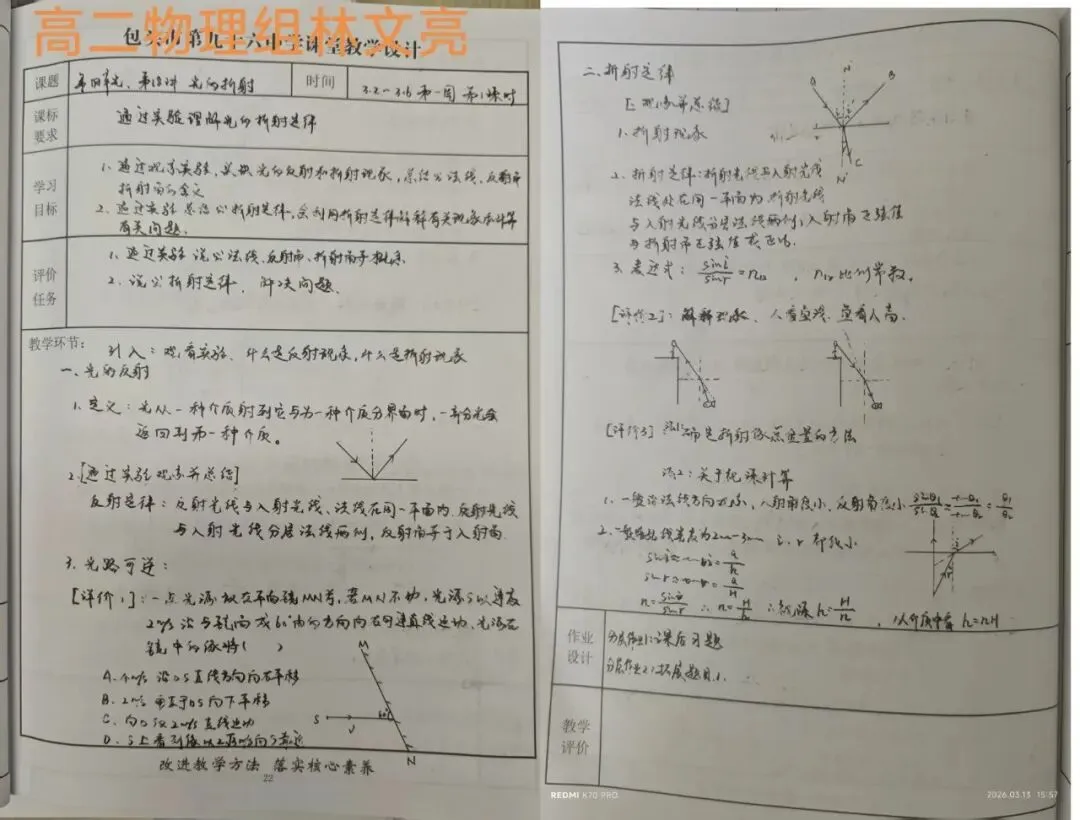 高二物理组林文亮
包头市第九十六中学课堂教学设计
课题
第四单元、第18讲 光的折射
时间
3.2-3.6 第一周 第1课时
课标
要求
通过实验理解光的折射定律
学习
目标
1. 通过观察实验,光的反射和折射现象,总结出法线、反射角
折射角的含义
2. 通过实验总结出折射定律,会利用折射定律解释有关现象和计算
有关问题.
评价
任务
1. 通过实验说出法线、反射角、折射角等概念.
2. 说出折射定律,解决问题.
教学环节:
引入:观看实验、什么是反射现象,什么是折射现象
一、光的反射
1. 定义:光从一种介质射到它与另一种介质分界面时,一部分光会
返回到第一种介质。
2.[通过实验观察并总结]
反射定律:反射光线与入射光线、法线在同一平面内.反射光线
与入射光线分居法线两侧,反射角等于入射角.
3. 光路可逆:
[评价1]:一点光源 在平面镜MN前,若MN不动,光源S以速度
2m/s 沿与镜面成60°角的方向向右匀速直线运动,光源在
镜中的像将( )
M
S
V
60°
N
A. 4m/s 沿OS直线方向向右平移
B. 2m/s 垂直于OS向下平移
C. 2m/s 直线运动
D. S上看到像以2m/s向S靠近
改进教学方法 落实核心素养
22
二、折射定律
[观察并总结]
A
N
B
1. 折射现象
C
N'
2. 折射定律:折射光线与入射光线
法线处在同一平面内,折射光线
与入射光线分居法线两侧;入射角正弦值
与折射角正弦值成正比.
3. 表达式: sini/sinr = n12 , n12比例常数.
[评价2]: 解释现象、人看鱼浅.鱼看人高.
[评价3] 确定折射像点位置的方法
活2:关于视深计算
1. 一般沿法线方向观察,入射角很小,反射角很小 sinθ1/sinθ2 = tanθ1/tanθ2 = θ1/θ2
2. 2mm-3mm i、r 都很小
sini≈tani= a/h
sinr≈tanr= a/H
n= sini/sinr ∴ n= H/h ∴视深h= H/n , h=nH
作业
设计
分层作业1:课后习题
分层作业2:拓展题目.1.
教学
评价
REDMI K70 PRO
2026.03.13 15:57